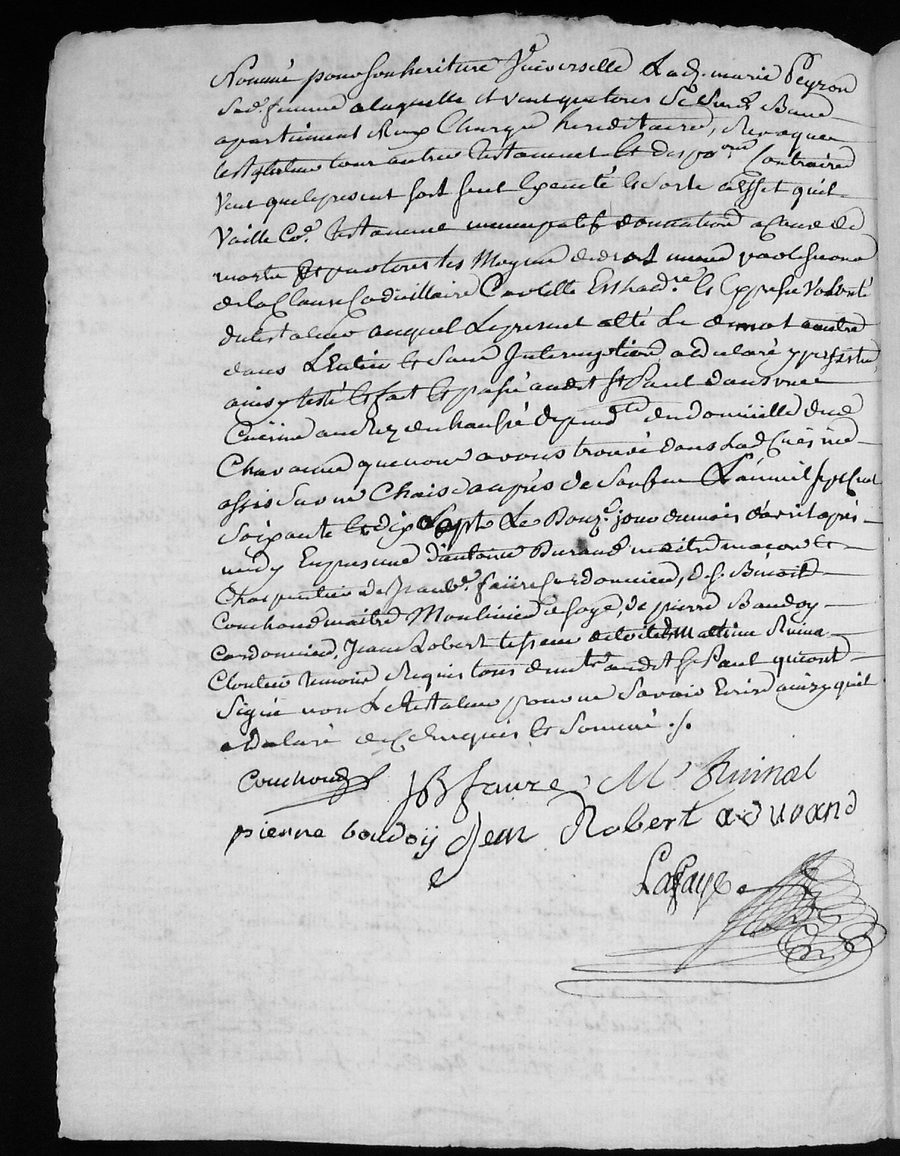 Nommé pour son heritiere Universelle Lad. marie Peyron
Sad. femme a laquelle il veut que tous Ses Surd. Biens
apartiennent Aux Charges hereditaires, Revoquant
led. testateur tous autres testaments et dispo.ons Contraires
Veut que le present sort seul Execute et sorte a Effet quil
Vaille Co.e testament nuncupatif donnation a Cause de
mort et par tous les Moyens de droit meme par le benefice
de la Clause Codicillaire Car telle Est lad. et Expresse Volonté
du testateur auquel Le present a été Lu de mot a autre
dans L'Entier et Sans Interruption a declaré y persister
ainsy testé et fait et passé aud. St Paul dans une
Cuisine au Rez de chaussé depend.te du domicille dud
Chavanne que nous avons trouvé dans Lad Cuisine
assis Sur une Chaise aupres de Son feu L'an mil sept Cent
Soixante et dix Sept Le Douz.e jour du mois d'avril apres
midy En presence d'antoine Durand maitre macon et
Charpentier de Jean B. faure Cordonnier, de S. Benoit
Couchoud maitre Moulinier a Soye, de pierre Baudoy
Cordonnier, Jean Robert tisseur de toile Mathieu Ruinat
Cloutier temoins Requis tous demt.s aud. St Paul qui ont
Signé non Le testateur pour ne Savoir Ecrire ainsy quil
a declaré de ce Enquis et Sommé ./.
Couchoud JB faure M Ruinat
pierre boudoij Jean Robert a durand
Lafaye